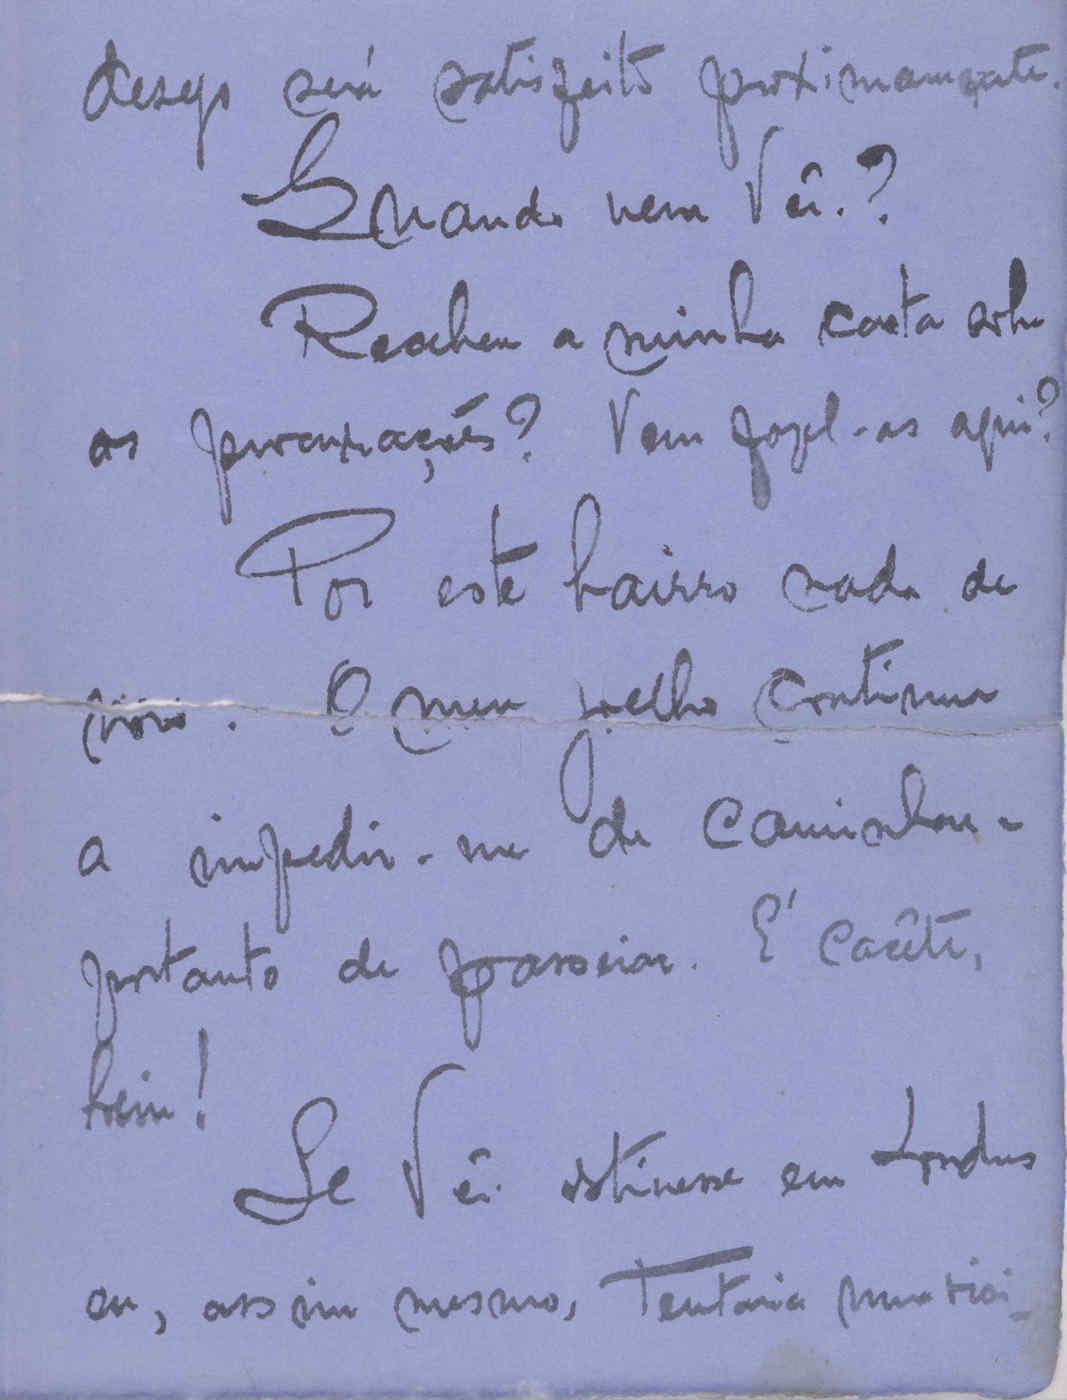 desejo será satisfeito proximamente.
Quando vem Você.?
Recebeu a minha carta sobre
as procurações? Vem fazel-as aqui?
Por este bairro nada de
novo. O meu joelho continua
a impedir-me de caminhar e
portanto de passeiar. E' cacête,
hein!
Se Você estivesse em Londres
eu, assim mesmo, Tentaria uma